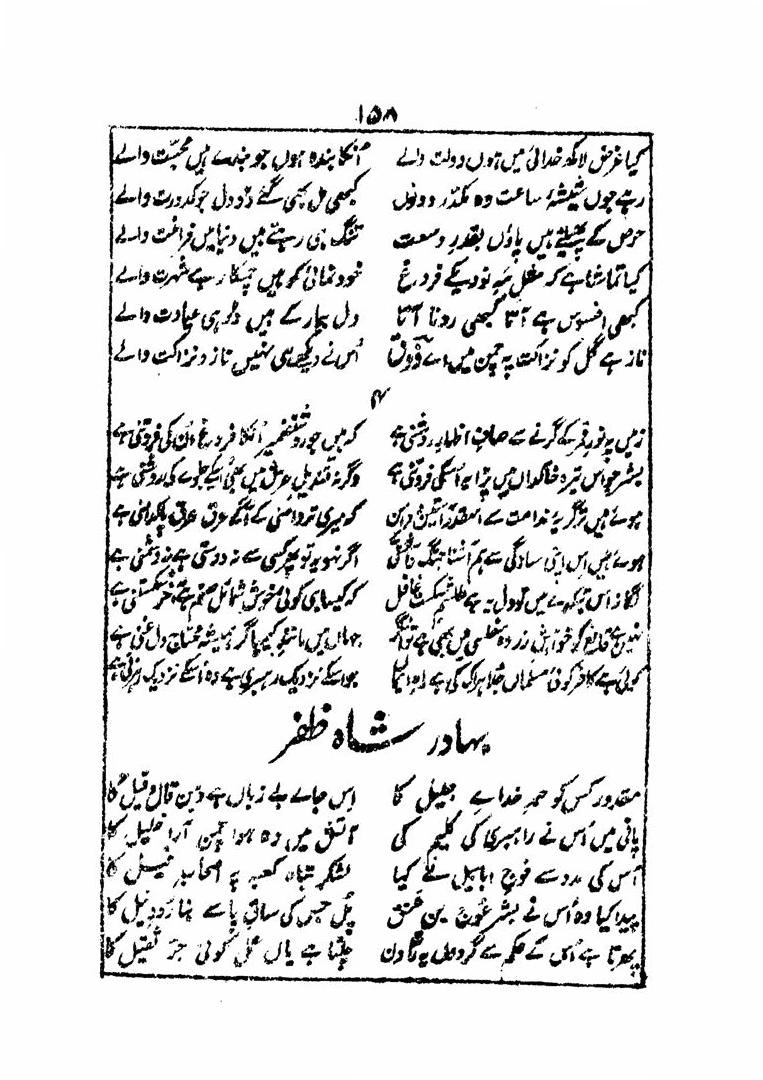 ۱۵۸
کیا غرض لاکھ خدائی میں ہوں دولت والے انکا بندہ ہوں جو بندے ہیں محبت والے
رہے جوں شیشۂ ساعت وہ مکدر دونوں کبھی مل بھی گئے دو دل جو کدورت والے
حرص کے پھیلتے ہیں پاؤں بقدر وسعت تنگ ہی رہتے ہیں دنیا میں فراغت والے
کیا تماشا ہے کہ مثل مہ نو دیکے فروغ خود نمائی کو ہیں چمکا رہے شہرت والے
کبھی افسوس ہے آتا کبھی رونا آتا دل بیمار کے ہیں دو ہی عیادت والے
ناز ہے گل کو نزاکت پہ چمن میں اے ذوق اُس نے دیکھے ہی نہیں ناز و نزاکت والے
زمیں پہ نور قمر کے گرنے سے صاف اظہار روشنی ہے کہ ہیں جو روشنضمیر انکا فروغ اُن کی فروتنی ہے
بشر جو اس تیرہ خاکداں میں پڑا یہ اسکی فروتنی ہے وگرنہ قندیل عرش میں بھی اسکے جلوے کی روشنی ہے
ہوئے ہیں تر گریۂ ندامت سے اسقدر آستین و دامن کہ میری تر دامنی کے آگے عرق عرق پاکدامنی ہے
ہوئے ہیں اس اپنی سادگی سے ہم آشنا جنگ و آشتی سے اگر نہو یہ تو پھر کسی سے نہ دوستی ہے نہ دشمنی ہے
لگا نہ اس بتکدے میں تو دل یہ ہے طلسم شکست غافل کہ کیسا ہی کوئی خوش شمائل صنم ہے آخر شکستنی ہے
نہیں ہے قانع کو خواہش زر وہ مفلسی میں بھی ہے تونگر جہاں میں مانند کیمیاگر ہمیشہ محتاج دل غنی ہے
کوئی ہے کافر کوئی مسلماں جدا ہر اک کی ہے راہ ایماں جو اسکے نزدیک رہبری ہے وہ اسکے نزدیک رہزنی ہے
بہادر شاہ ظفر
مقدور کس کو حمد خدائے جلیل کا اس جائے بے زباں ہے دہن قال و قیل کا
پانی میں اُس نے راہبری کی کلیم کی آتش میں وہ ہوا چمن آرا خلیل کا
اُس کی مدد سے فوج ابابیل نے کیا لشکر تباہ کعبہ پہ اصحاب فیل کا
پیدا کیا وہ اُس نے بشر عوج بن عنق پل جس کی ساق پا سے بنا رود نیل کا
پھرتا ہے اُس کے حکم سے گردوں یہ رات دن چلتا ہے یاں عمل کوئی جر ثقیل کا